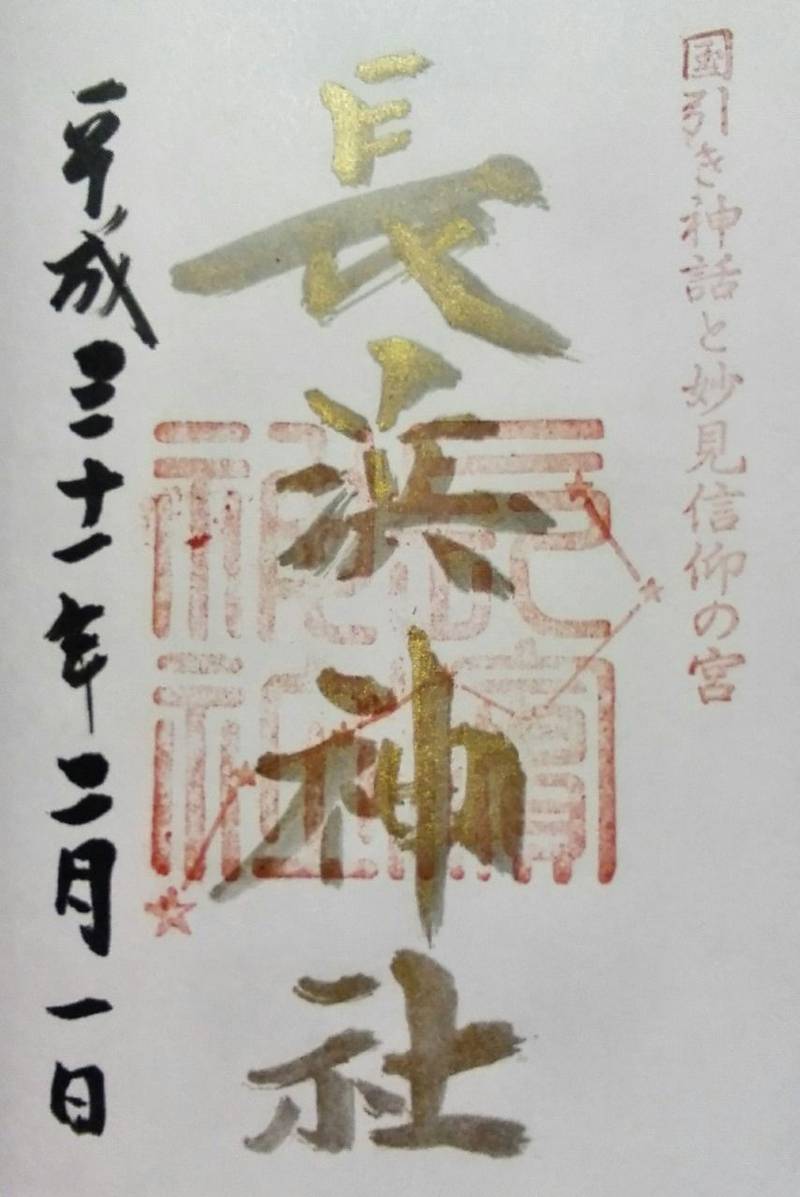 国引き神話と妙見信仰の宮
長浜神社
平成三十一年二月一日